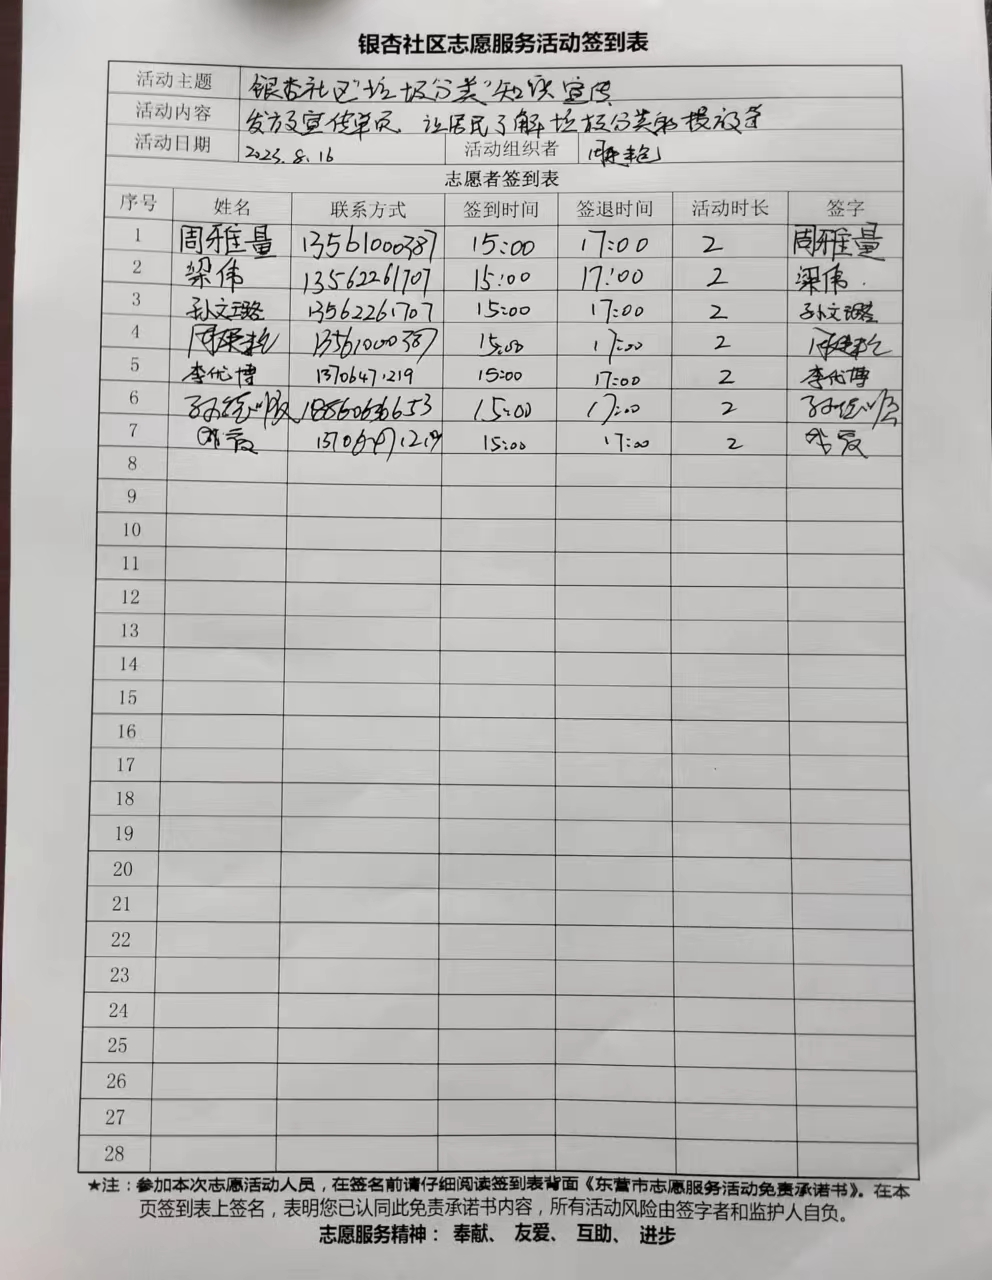 银杏社区志愿服务活动签到表
活动主题 银杏社区"垃圾分类"知识宣传
活动内容 发放宣传单页、让居民了解垃圾分类和投放等
活动日期 2023.8.16 活动组织者
志愿者签到表
序号 姓名 联系方式 签到时间 签退时间 活动时长 签字
1 周雅量 13561000387 15:00 17:00 2 周雅量
2 梁伟 13562261707 15:00 17:00 2 梁伟
3 孙文璐 13562261707 15:00 17:00 2 孙文璐
4 13561000387 15:00 17:00 2
5 李代博 13706471219 15:00 17:00 2 李代博
6 15:00 17:00 2
7 15:00 17:00 2
8
9
10
11
12
13
14
15
16
17
18
19
20
21
22
23
24
25
26
27
28
★注：参加本次志愿活动人员，在签名前请仔细阅读签到表背面《东营市志愿服务活动免责承诺书》。在本
页签到表上签名，表明您已认同此免责承诺书内容，所有活动风险由签字者和监护人自负。
志愿服务精神： 奉献、 友爱、 互助、 进步